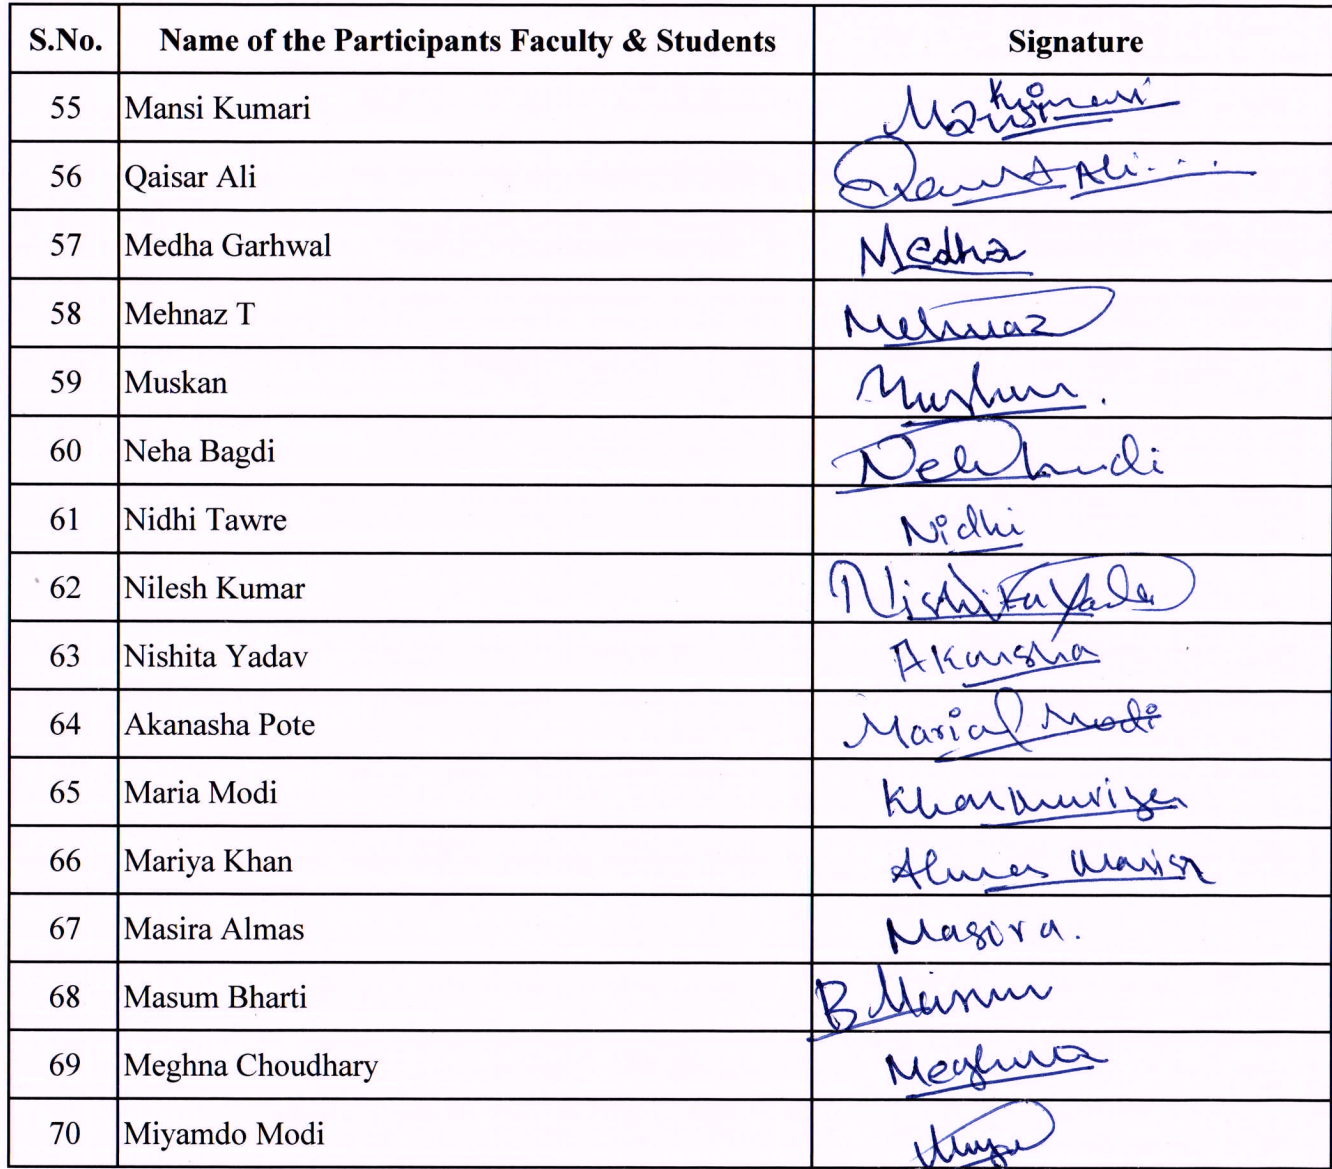 S.No. Name of the Participants Faculty & Students Signature
55 Mansi Kumari Mansi Kumari
56 Qaisar Ali Ali
57 Medha Garhwal Medha
58 Mehnaz T Mehnaz
59 Muskan
60 Neha Bagdi
61 Nidhi Tawre Nidhi
62 Nilesh Kumar Nishita Yada
63 Nishita Yadav Akansha
64 Akanasha Pote Maria Modi
65 Maria Modi Khan
66 Mariya Khan
67 Masira Almas Masira.
68 Masum Bharti B Masum
69 Meghna Choudhary Meghna
70 Miyamdo Modi